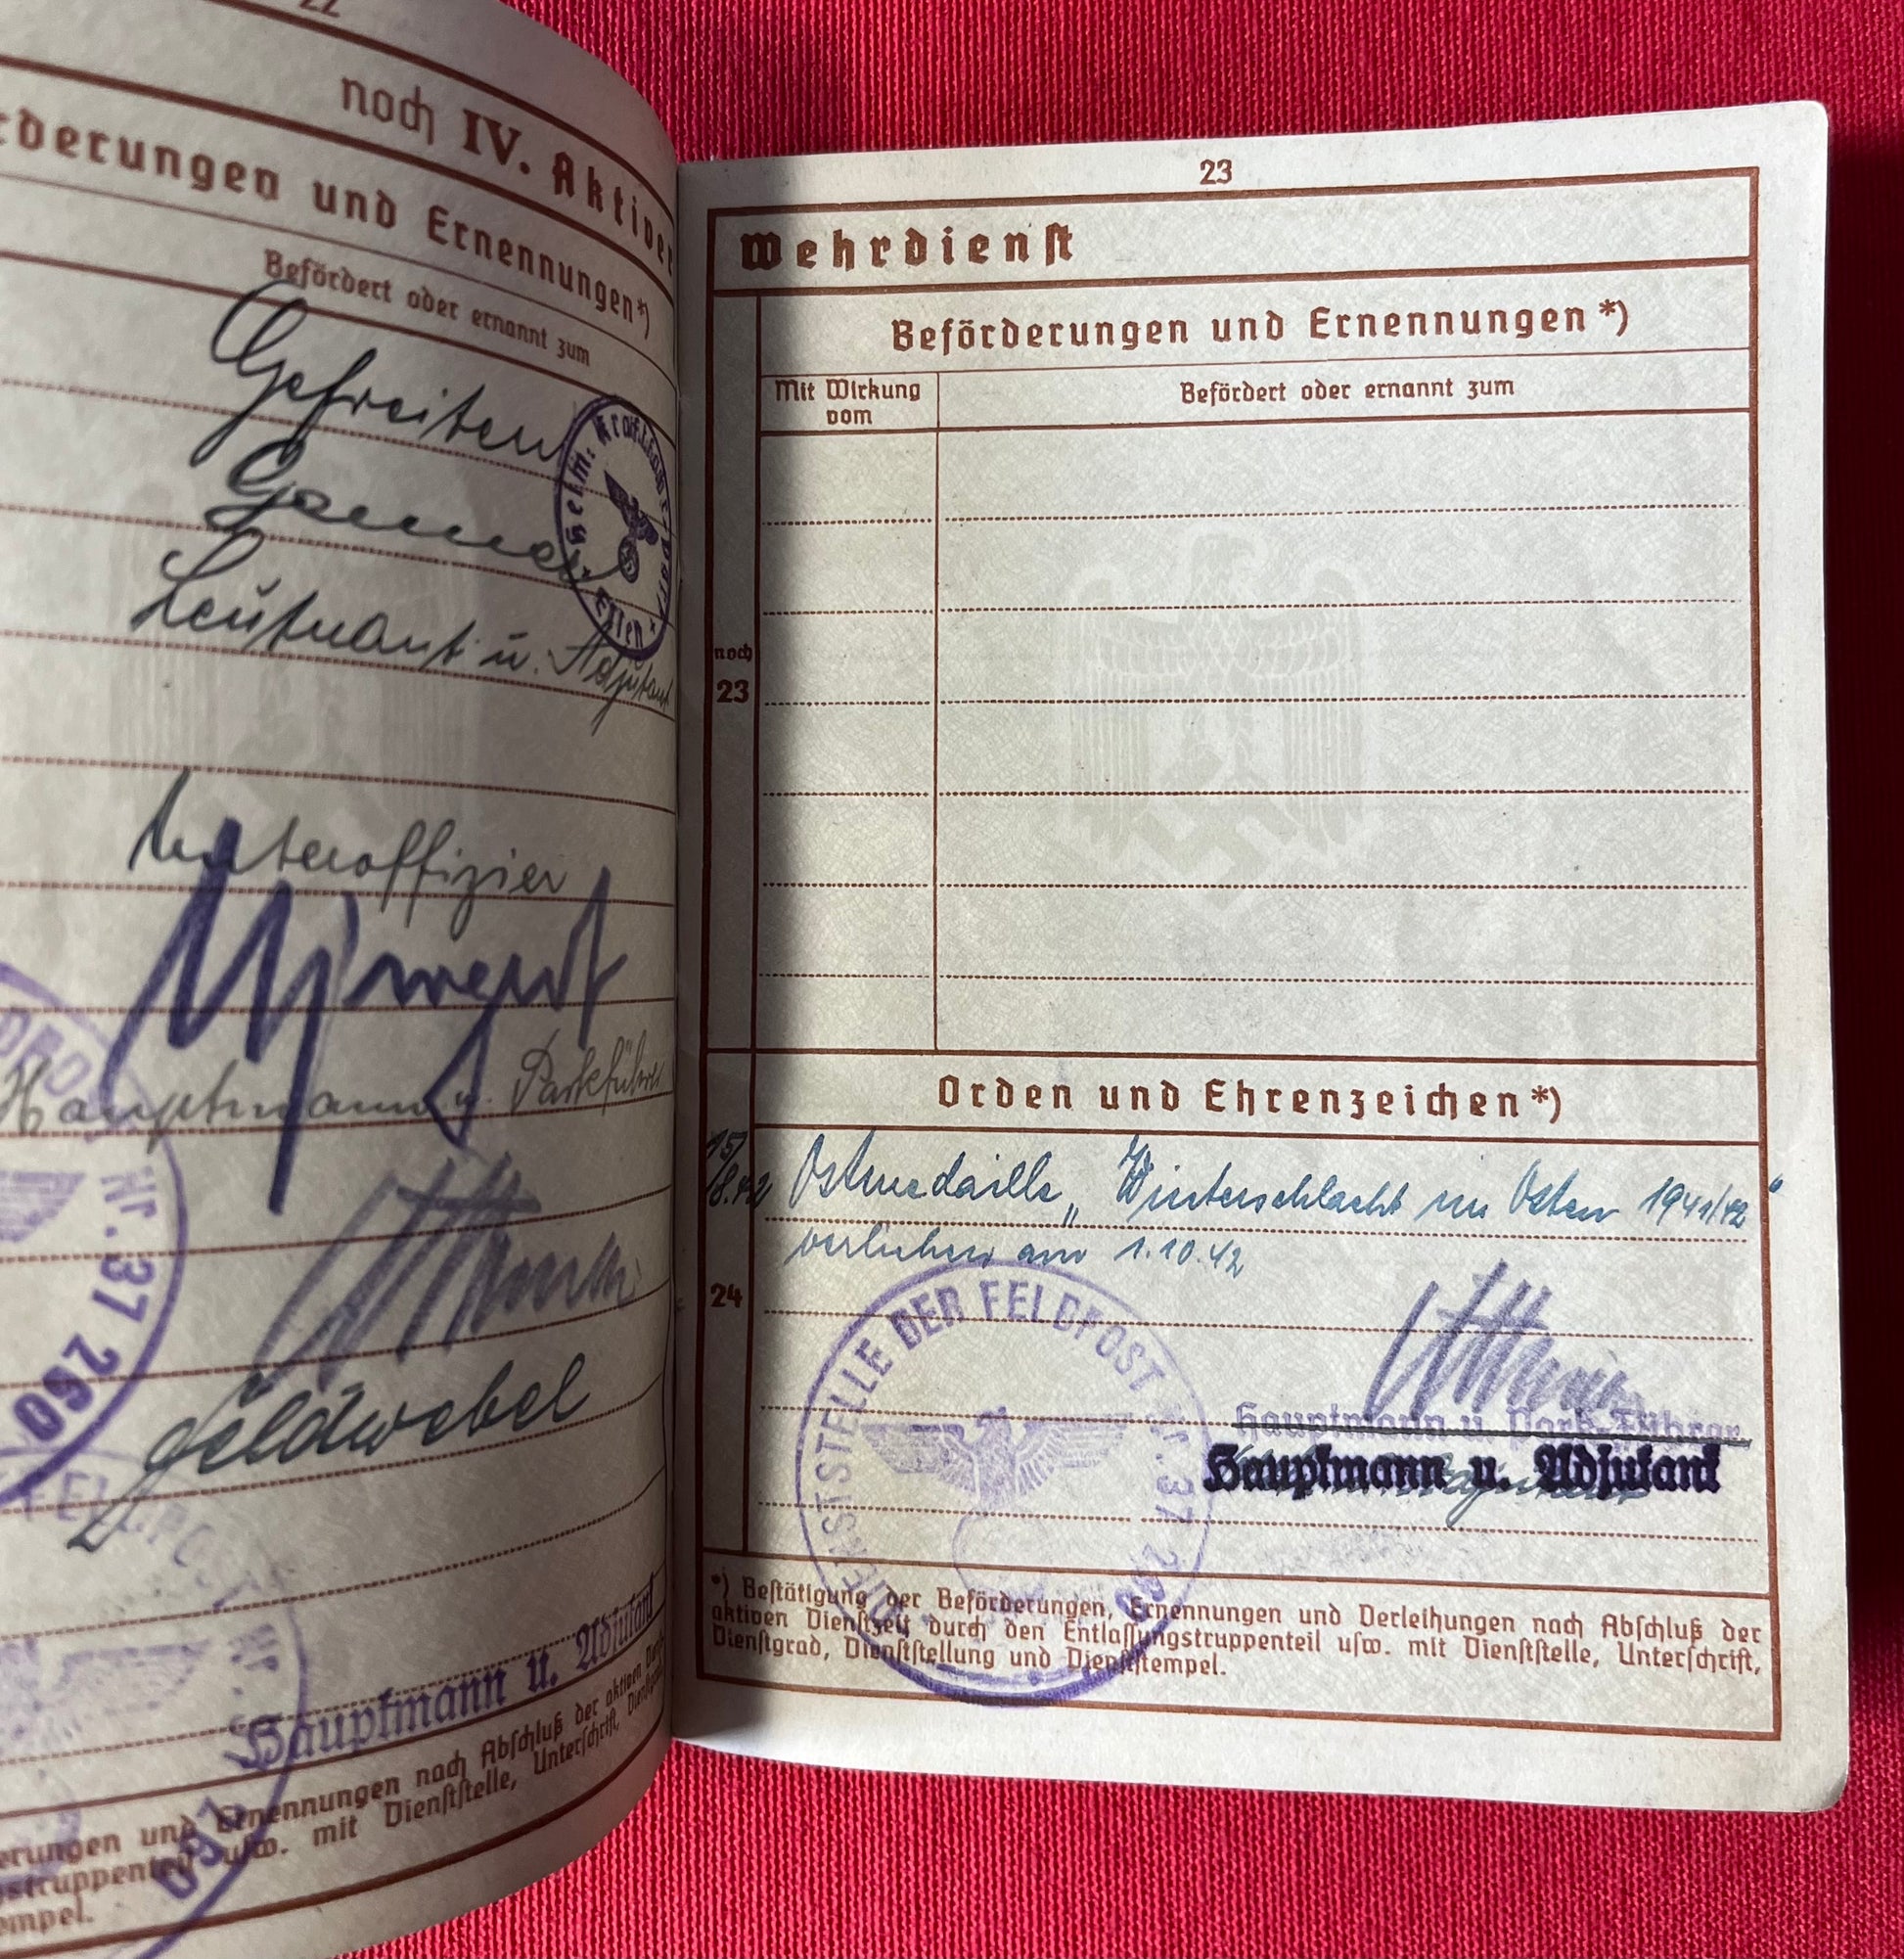 22
noch IV. Aktiver
rderungen und Ernennungen*)
Befördert oder ernannt zum
Gefreiten
Heim: Kraft
Essen
Leutnant u. Adjutant
Unteroffizier
Hauptmann u. Parkführer
Nr. 37 260
Feldwebel
FELDPOST Nr. 
Hauptmann u. Adjutant
erungen und Ernennungen nach Abschluß der aktiven Dienst
struppenteil usw. mit Dienststelle, Unterschrift, Dienstgrad,
empel.
23
Wehrdienst
Beförderungen und Ernennungen*)
Mit Wirkung
vom
Befördert oder ernannt zum
noch
23
Orden und Ehrenzeichen*)
15/8.42 Ostmedaille „Winterschlacht im Osten 1941/42“
verliehen am 1.10.42
24
DIENSTSTELLE DER FELDPOST Nr. 37 260
Hauptmann u. Park-Führer
Hauptmann u. Adjutant
*) Bestätigung der Beförderungen, Ernennungen und Verleihungen nach Abschluß der
aktiven Dienstzeit durch den Entlassungstruppenteil usw. mit Dienststelle, Unterschrift,
Dienstgrad, Dienststellung und Dienststempel.